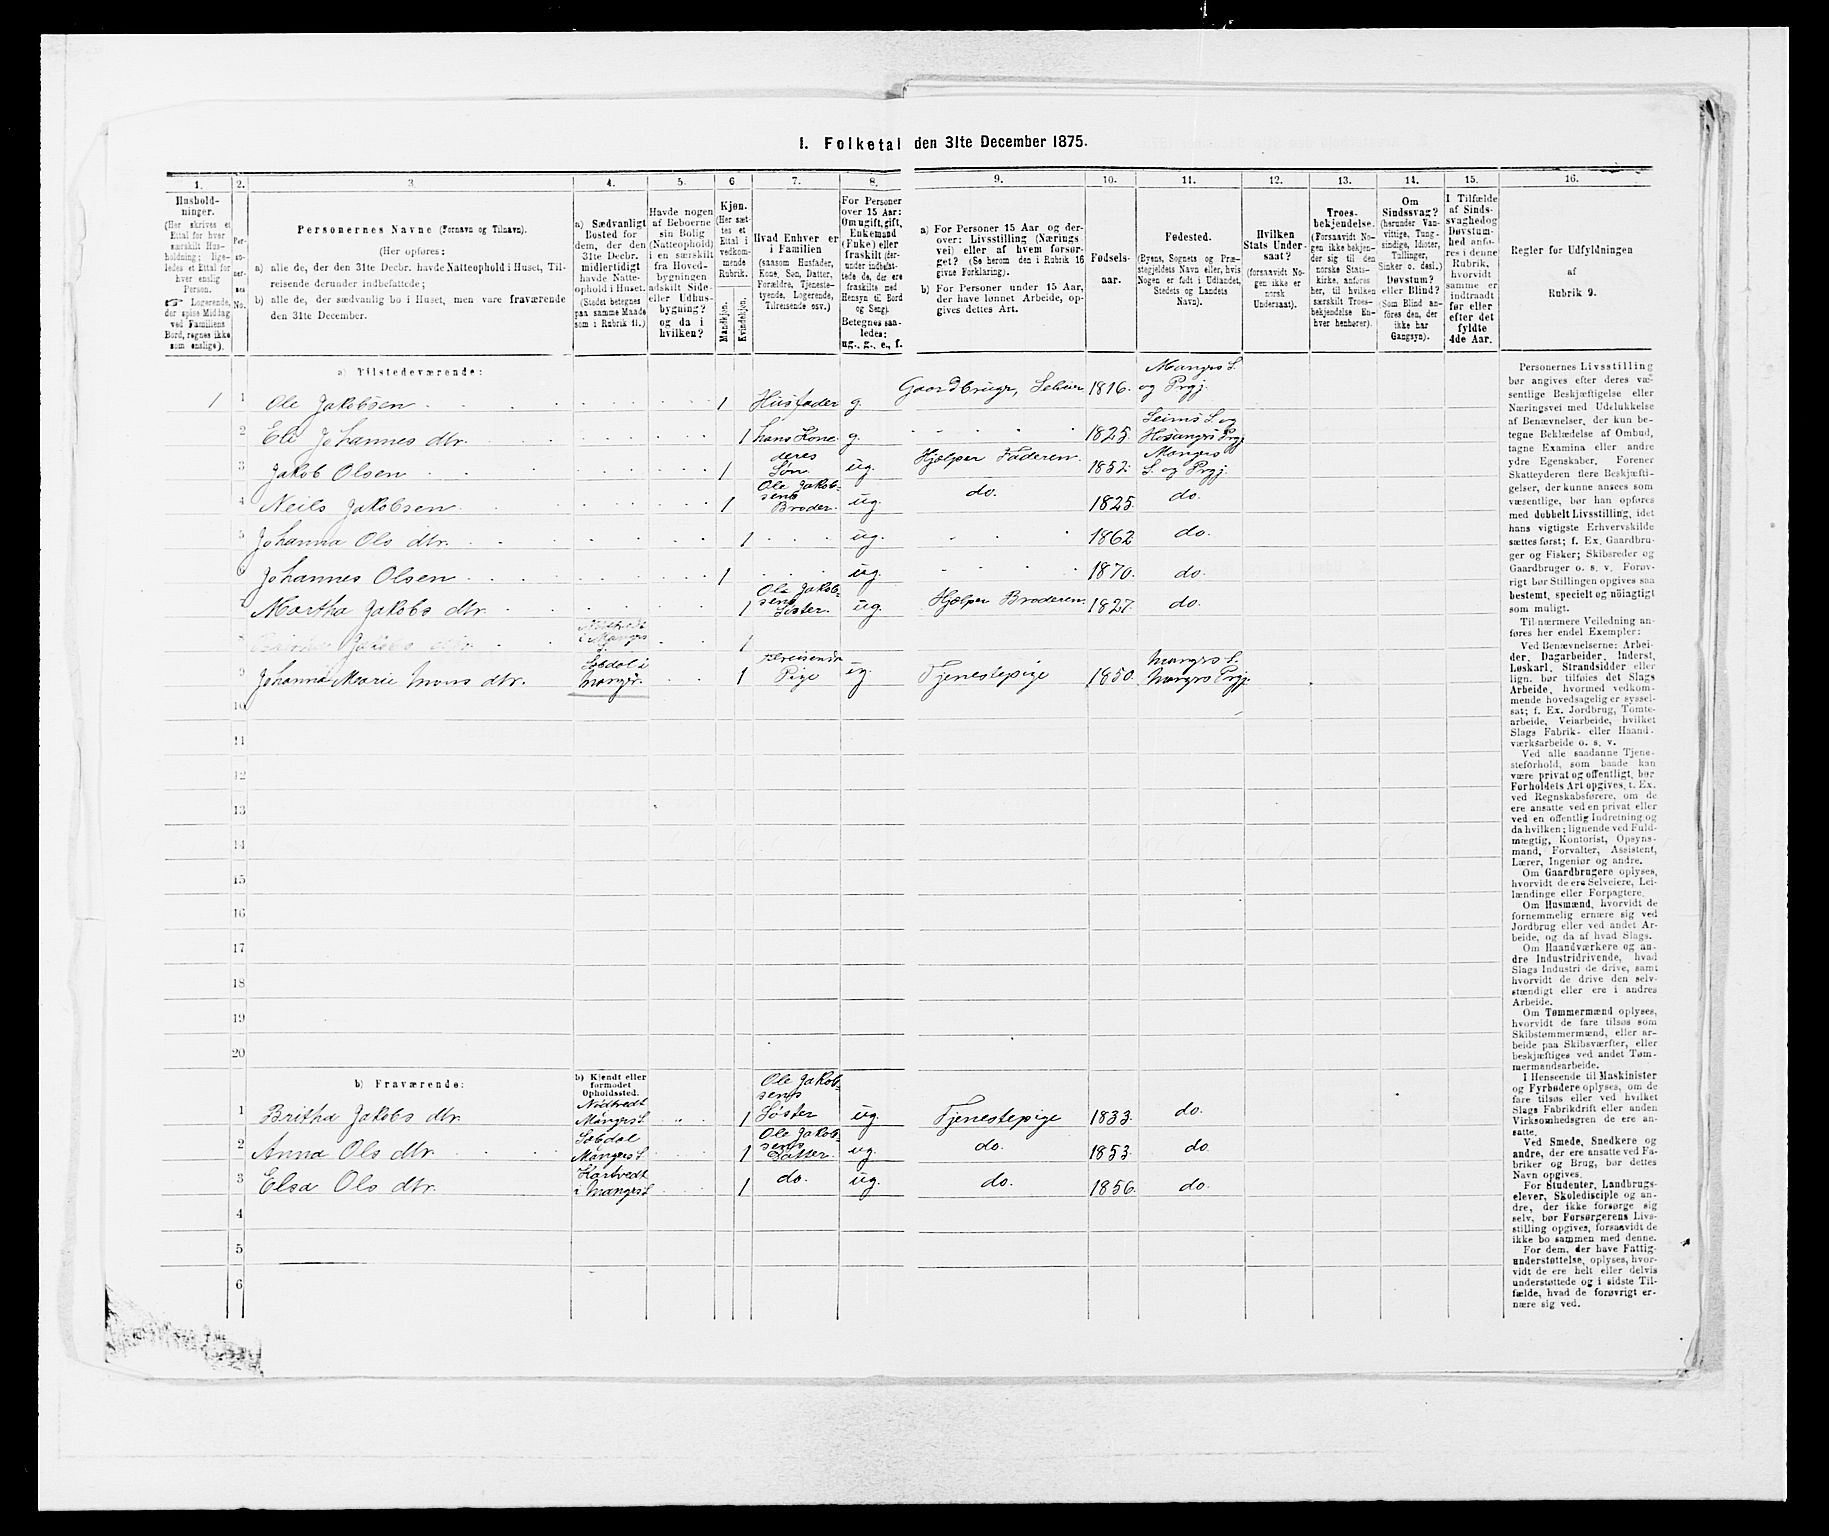 I. Folketal den 31te December 1875.
1. 2. 3 4. 5. 6 7. 8. 9. 10. 11. 12. 13. 14. 15. 16.
Hushold-
ninger.
(Her skrives et
Ettal for hver
særskilt Hus-
holdning; lige-
ledes et Ettal for
hver enslig
Person.
☞ Logerende,
der spise Middag
ved Familiens
Bord, regnes ikke
som enslige).
Per-
so-
ner-
nes
No.
Personernes Navne (Fornavn og Tilnavn).
(Her opføres:
a) alle de, der den 31te Decbr. havde Natteophold i Huset, Til-
reisende derunder indbefattede;
b) alle de, der sædvanlig bo i Huset, men vare fraværende
den 31te December.
a) Sædvanligt
Bosted for
dem, der den
31te Decbr.
midlertidigt
havde Natte-
ophold i Huset.
(Stedet betegnes
paa samme Maade
som i Rubrik 11.)
Havde nogen
af Beboerne
sin Bolig
(Natteophold)
i en særskilt
fra Hoved-
bygningen
adskilt Side-
eller Udhus-
bygning?
og da i
hvilken?
Kjøn.
(Her sæt-
tes et
Ettal i
vedkom-
mende
Rubrik.
Mandkjøn.
Kvindekjøn.
Hvad Enhver er
i Familien
(saasom Husfader,
Kone, Søn, Datter,
Forældre, Tjeneste-
tyende, Logerende,
Tilreisende osv.)
For Personer
over 15 Aar:
Om ugift, gift,
Enkemand
(Enke) eller
fraskilt (der-
under indbefat-
tede de, der ere
fraskilte med
Hensyn til Bord
og Seng).
Betegnes saa-
ledes:
ug., g., e., f.
a) For Personer 15 Aar og der-
over: Livsstilling (Nærings
vei) eller af hvem forsør-
get? (Se herom den i Rubrik 16
givne Forklaring).
b) For Personer under 15 Aar,
der have lønnet Arbeide, op-
gives dettes Art.
Fødsels-
aar.
Fødested.
(Byens, Sognets og Præ-
stegjeldets Navn eller, hvis
Nogen er født i Udlandet,
Stedets og Landets
Navn).
Hvilken
Stats Under-
saat?
(forsaavidt No-
gen ikke er
norsk
Undersaat).
Troes-
bekjendelse.
(Forsaavidt No-
gen ikke bekjen-
der sig til den
norske Stats-
kirke, anføres
her, til hvilken
særskilt Troes-
bekjendelse En-
hver henhører).
Om
Sindssvag?
(herunder Van-
vittige, Tung-
sindige, Idioter,
Tullinger,
Sinker o. desl.)
Døvstum?
eller Blind?
(Som Blind an-
føres den, der
ikke har
Gangsyn).
I Tilfælde
af Sinds-
svaghed og
Døvstum-
hed anfø-
res i denne
Rubrik,
hvorvidt
samme er
indtraadt
før eller
efter det
fyldte
4de Aar.
Regler for Udfyldningen
af
Rubrik 9.
a) Tilstedeværende:
1 1 Ole Jakobsen 1 Husfader g. Gaardbruger, Selveier 1816. Mangers S. og Prgj.
2 Eli Johannes dtr. 1 hans Kone g. 1825. Seims S. og Hosangers Prgj
3 Jakob Olsen 1 deres Søn. ug. Hjælper Faderen. 1852. Mangers S. og Prgj.
4 Neils Jakobsen. 1 Ole Jakobsens Broder. ug. do. 1825. do.
5 Johanna Ols dtr. 1 ug. 1862 do.
6 Johannes Olsen 1 ug. 1870. do.
7 Martha Jakobs dtr. 1 Ole Jakobsens Søster. ug. Hjælper Broderen. 1827. do.
Jakobs dtr. i Mangers 1
9 Johanna Marie Mons dtr. i Manger. 1 Pige ug. Tjenestepige 1850. Mangers S. Mangers Prgj.
10
11
12
13
14
15
16
17
18
19
20
b) Fraværende:
b) Kjendt eller
formodet
Opholdssted.
1 Britha Jakobs dtr. Nødtvedt Mangers S. 1 Ole Jakobsens Søster ug. Tjenestepige 1833. do.
2 Anna Ols dtr. Mangers S 1 Ole Jakobsens Datter. ug. do. 1853. do.
3 Elsa Ols dtr. i Mangers S 1 do. ug. do. 1856. do.
4
5
6
Personernes Livsstilling
bør angives efter deres væ-
sentlige Beskjæftigelse eller
Næringsvei med Udelukkelse
af Benævnelser, der kun be-
tegne Beklædelse af Ombud,
tagne Examina eller andre
ydre Egenskaber. Forener
Skatteyderen flere Beskjæfti-
gelser, der kunne ansees som
væsentlige, bør han opføres
med dobbelt Livsstilling, idet
hans vigtigste Erhvervskilde
sættes først; f. Ex. Gaardbru-
ger og Fisker; Skibsreder og
Gaardbruger o. s. v. Forøv-
rigt bør Stillingen opgives saa
bestemt, specielt og nøiagtigt
som muligt.
Til nærmere Veiledning an-
føres her endel Exempler:
Ved Benævnelserne: Arbei-
der, Dagarbeider, Inderst,
Løskarl, Strandsidder eller
lign. bør tilføies det Slags
Arbeide, hvormed vedkom-
mende hovedsagelig er syssel-
sat; f. Ex. Jordbrug, Tømte-
arbeide, Veiarbeide, hvilket
Slags Fabrik- eller Haand-
værksarbeide o. s. v.
Ved alle saadanne Tjene-
steforhold, som baade kan
være privat og offentligt, bør
Forholdets Art opgives, t. Ex.
ved Regnskabsførere, om de
ere ansatte ved en privat eller
ved en offentlig Indretning og
da hvilken; lignende ved Fuld-
mægtig, Kontorist, Opsyns-
mand, Forvalter, Assistent,
Lærer, Ingeniør og andre.
Om Gaardbrugere oplyses,
hvorvidt de ere Selveiere, Lei-
lændinge eller Forpagtere.
Om Husmænd, hvorvidt de
fornemmelig ernære sig ved
Jordbrug eller ved andet Ar-
beide, og da af hvad Slags.
Om Haandværkere og an-
dre Industridrivende, hvad
Slags Industri de drive, samt
hvorvidt de drive den selv-
stændigt eller ere i andres
Arbeide.
Om Tømmermænd oplyses,
hvorvidt de fare tilsøs som
Skibstømmermænd, eller ar-
beide paa Skibsværfter, eller
beskjæftiges ved andet Tøm-
mermandsarbeide.
I Henseende til Maskinister
og Fyrbødere oplyses, om de
fare tilsøs eller ved hvilket
Slags Fabrikdrift eller anden
Virksomhedsgren de ere an-
satte.
Ved Smede, Snedkere og
andre, der ere ansatte ved Fa-
briker og Brug, bør dettes
Navn opgives.
For Studenter, Landbrugs-
elever, Skoledisciple og an-
dre, der ikke forsørge sig
selv, bør Forsørgerens Livs-
stilling opgives, forsaavidt de
ikke bo sammen med denne.
For dem, der have Fattig-
understøttelse, oplyses, hvor-
vidt de ere helt eller delvis
understøttede og i sidste Til-
fælde, hvad de forøvrigt er-
nære sig ved.